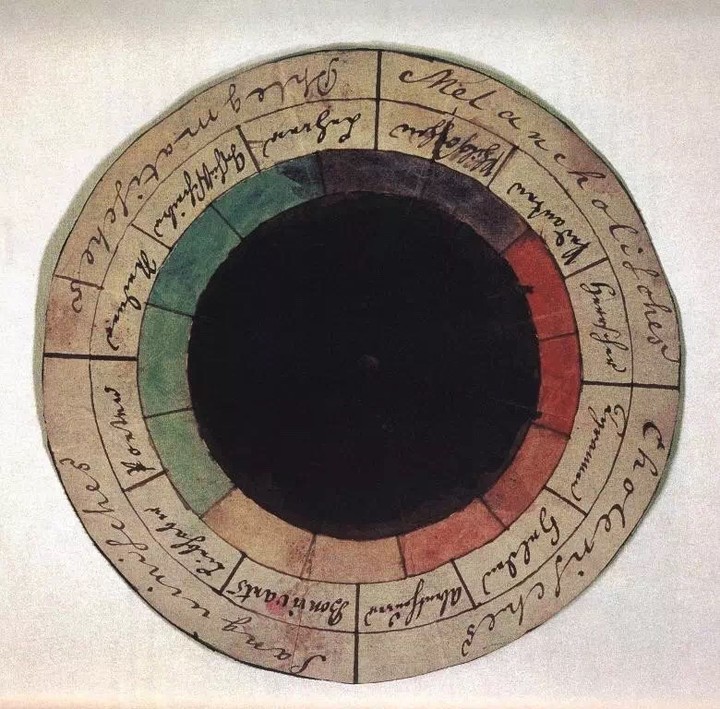 Melancholisches
Philosophen
Pedanten
Herrscher
Cholerisches
Tyrannen
Helden
Abentheurer
Sanguinisches
Bonvivants
Liebhaber
Poeten
Phlegmatisches
Redner
Geschichtschreiber
Lehrer